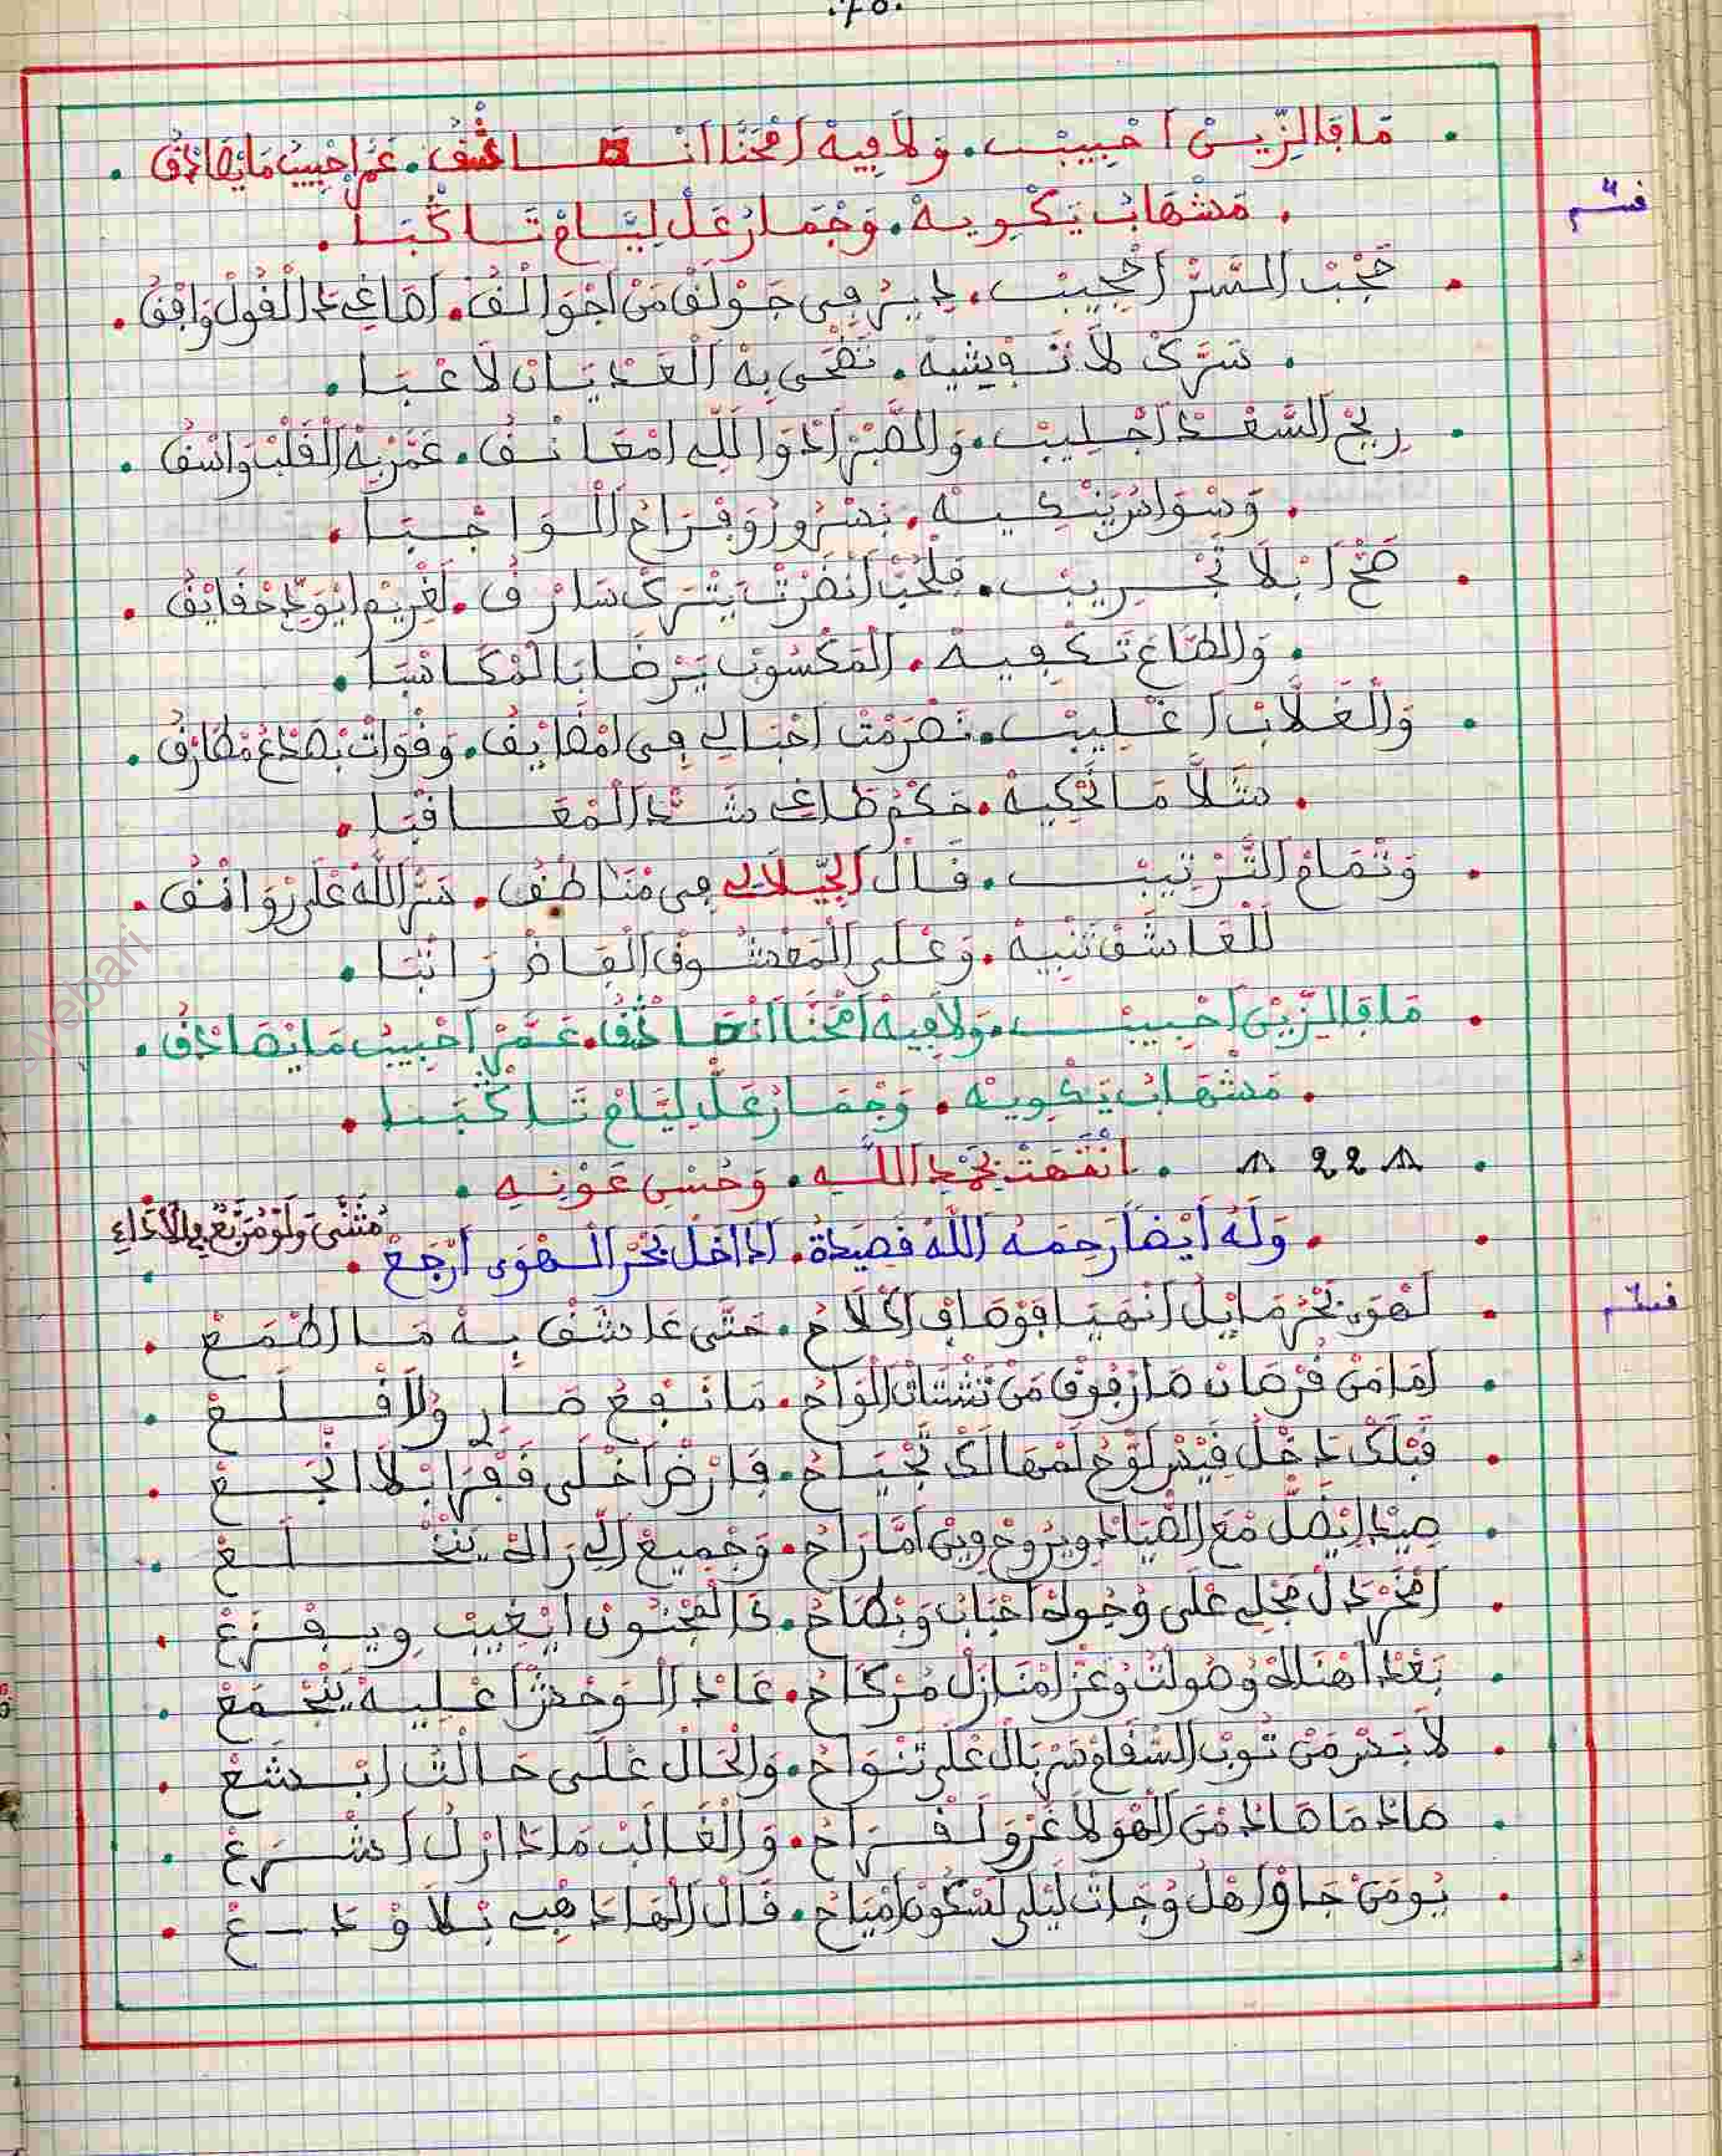 .78.
. مَا فَالزِّينْ اَحْبِيبْ. وَلَا فِيهْ اَمْحَنَّا اَنْصَادْفُ. عَمَّرْ اَحْبِيبْ مَا يْصَادْفُ .
. مَشْهَابْ يَكْوِيهْ. وَجْمَارْ عَلْ لِيَّامْ تَاكْبَا .
قسم
. حَجْبْ السَّرْ اَحْجِيبْ. دِيرُ فِي جَوْلَفْ مَنْ اَجْوَالْفُ. اَصَاغِي دَا الْقُولْ وَافْقُ .
. سَرَّكْ لَا تَفْشِيهْ. تَضْحَى بِهْ الْعَدْيَانْ لَاعْبَا .
. رِيحْ السَّعْدْ اَجْلِيبْ. وَالصَّبْرْ اَدْوَا لَلِّي اَمْعَانْفُ. عَمَّرْ بِهْ الْقَلْبْ وَاسْفُ .
. وَسْوَاسْ يَنْكِيهْ. بَسْرُورْ وَفْرَاحْ الْوَاجْبَا .
. صَحْ اَبْلَا تَجْرِيبْ. فَلْحُبْ اَنْضَرْتْ يَتْرَكْ سَارْفُ. لَغْرِيمْ اِيْوَدِّي حْقَايْقُ .
. وَالطَّاعْ تَكْفِيهْ. الْمَكْسُوبْ يَرْضَا بَالْمْكَاسْبَا .
. وَالْغَلَّابْ اَغْلِيبْ. نَصْرَمْتْ اَحْبَالِي فِي اَمْضَايْفُ. وَقْوَاتْ بْصَدْعْ مْطَارْقُ .
. شَلَّا مَا نَحْكِيهْ. حَكْمْ طَاغِي شَدْ الْمْعَاقْبَا .
. وَتْمَامْ التَّرْتِيبْ. قَالْ الْجِيلَالِي فِي مْنَاطْقُ. سَرْ اللَّهْ عْلَى رْوَانْقُ .
لَلْعَاشَقْ تَنْبِيهْ. وَعْلَى الْمَعْشُوقْ الْقَاضْ رَاتْبَا .
. مَا فَالزِّينْ اَحْبِيبْ. وَلَا فِيهْ اَمْحَنَّا اَنْصَادْفُ. عَمَّرْ اَحْبِيبْ مَا يْصَادْفُ .
. مَشْهَابْ يَكْوِيهْ. وَجْمَارْ عَلْ لِيَّامْ تَاكْبَا .
. 22 . انْتَهَتْ بِحَمْدِ اللَّهِ. وَحُسْنِ عَوْنِهِ .
. وَلَهُ أَيْضًا رَحِمَهُ اللَّهُ قَصِيدَةُ. اَدَاخَلْ بَحْرْ الْهْوَى اَرْجَعْ .
مُثَنَّى وَلَوْ مُرَبَّعٌ فِي الْأَدَاءِ
قسم
. لَهْوَى بَحْرْ هَايَلْ اَنْهَيَا فَوْصَافُ اَكْلَاحْ. حَتَّى عَاشَقْ بِهْ مَا اطْمَعْ .
. اَمَا مَنْ قُرْصَانْ صَارْ فُوقْ مَنْ تَشْتَاتْ الْوَاحْ. مَا نْفَعْ صَارِي وَلَا قْلَعْ .
. قَبْلَكْ دَخْلُ قَيْسْ لَوَّحْ لَمْهَالَكْ تَجْيَاحْ. فَارْضْ اَخْلَى قَفْرَا بْلَا اَنْجَعْ .
. صِيدْ اِيْضَلْ مْعَ الصَّيَادْ وِيرُوحْ وِينْ اَمَّا رَاحْ. وَجْمِيعْ اَلِّي رَاهْ يَنْخْلَعْ .
. اَمْخَرْ دَلْ مَخْلِي عْلَى وْجُوهْ اَجْبَابْ وَبْطَاحْ. دَا الْمَجْنُونْ اَيْغِيبْ وِيفْزَعْ .
. بَعْدْ اَهْنَاهْ وْصُولْتْ وْعَزْ اَمْنَازَلْ مُرْكَاحْ. عَادْ الْوَحْشْ اَعْلِيهْ يَنْجْمَعْ .
. لَابَسْ مَنْ تُوبْ السْقَامْ سَرْبَالْ عْلَى تَنْوَاحْ. وَالْحَالْ عْلَى حَالْتْ اَبْشَعْ .
. صَادْ مَا صَادْ مْنْ الْهْوَ لَا غَرْوْ لَفْرَاحْ. وَالْغَالَبْ مَا دَازْلْ اَشْرَعْ .
. يُومَنْ جَاوْ اَهْلُ وْجَاتْ لَيْلَى لَسْكُونْ اَمْيَاحْ. قَالْ الْهَا دَهْبِي بْلَا وْدَعْ .